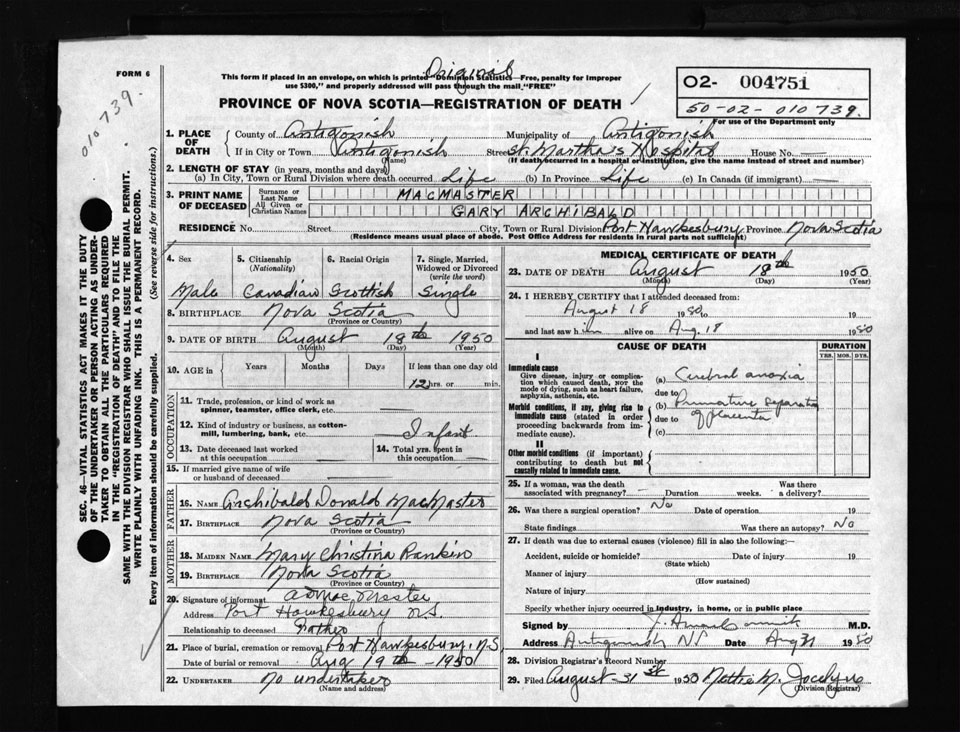 Original
FORM 6
This form if placed in an envelope, on which is printed "Dominion Statistics—Free, penalty for improper
use $300," and properly addressed will pass through the mail "FREE"
PROVINCE OF NOVA SCOTIA—REGISTRATION OF DEATH
02- 004751
50-02-010739
For use of the Department only
010739.
1. PLACE OF DEATH
County of Antigonish Municipality of Antigonish
If in City or Town Antigonish Street St. Martha's Hospital House No. —
(Name) (If death occurred in a hospital or institution, give the name instead of street and number)
2. LENGTH OF STAY (in years, months and days)
(a) In City, Town or Rural Division where death occurred Life (b) In Province Life (c) In Canada (if immigrant) —
3. PRINT NAME OF DECEASED
Surname or Last Name MACMASTER
All Given or Christian Names GARY ARCHIBALD
RESIDENCE No. Street City, Town or Rural Division Port Hawkesbury Province Nova Scotia
(Residence means usual place of abode. Post Office Address for residents in rural parts not sufficient)
4. Sex Male
5. Citizenship (Nationality) Canadian
6. Racial Origin Scottish
7. Single, Married, Widowed or Divorced (write the word) Single
8. BIRTHPLACE Nova Scotia
(Province or Country)
9. DATE OF BIRTH August 18th 1950
(Month) (Day) (Year)
10. AGE in Years Months Days If less than one day old
12 hrs. or min.
OCCUPATION
11. Trade, profession, or kind of work as
spinner, teamster, office clerk, etc. —
12. Kind of industry or business, as cotton-
mill, lumbering, bank, etc. Infant
13. Date deceased last worked
at this occupation —
14. Total yrs. spent in
this occupation —
15. If married give name of wife
or husband of deceased —
FATHER
16. NAME Archibald Donald MacMaster
17. BIRTHPLACE Nova Scotia
MOTHER
18. MAIDEN NAME Mary Christina Rankin
19. BIRTHPLACE Nova Scotia
(Province or Country)
20. Signature of informant A D MacMaster
Address Port Hawkesbury N.S.
Relationship to deceased Father
21. Place of burial, cremation or removal Port Hawkesbury, N.S
Date of burial or removal Aug 19th - 1950
22. UNDERTAKER No undertaker
(Name and address)
MEDICAL CERTIFICATE OF DEATH
23. DATE OF DEATH August 18th 1950
(Month) (Day) (Year)
24. I HEREBY CERTIFY that I attended deceased from:
August 18 1950 to 19
and last saw him alive on Aug. 18 1950
CAUSE OF DEATH
DURATION
YRS. MOS. DYS.
I
Immediate cause
Give disease, injury or complica-
tion which caused death, NOT the
mode of dying, such as heart failure,
asphyxia, asthenia, etc.
(a) Cerebral anoxia
due to
Morbid conditions, if any, giving rise to
immediate cause (stated in order
proceeding backwards from im-
mediate cause).
(b) Premature separation
due to of placenta
(c)
II
Other morbid conditions (if important)
contributing to death but not
causally related to immediate cause.
25. If a woman, was the death
associated with pregnancy? — Duration weeks. — Was there
a delivery?
26. Was there a surgical operation? No Date of operation 19
State findings Was there an autopsy? No
27. If death was due to external causes (violence) fill in also the following:—
Accident, suicide or homicide? Date of injury 19
(State which)
Manner of injury
(How sustained)
Nature of injury
Specify whether injury occurred in industry, in home, or in public place
Signed by M.D.
Address Antigonish NS Date Aug 31 1950
28. Division Registrar's Record Number
29. Filed August 31st 1950 Nettie M. Jocelyn
(Division Registrar)
SEC. 46—VITAL STATISTICS ACT MAKES IT THE DUTY
OF THE UNDERTAKER OR PERSON ACTING AS UNDER-
TAKER TO OBTAIN ALL THE PARTICULARS REQUIRED
IN THE "REGISTRATION OF DEATH" AND TO FILE THE
SAME WITH THE DIVISION REGISTRAR WHO SHALL ISSUE THE BURIAL PERMIT.
WRITE PLAINLY WITH UNFADING INK. THIS IS A PERMANENT RECORD.
Every item of information should be carefully supplied. (See reverse side for instructions.)